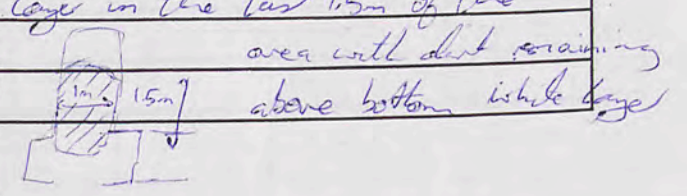 layer in the last 1.5m of the
area with dust remaining
1m 1.5m above bottom whole layer